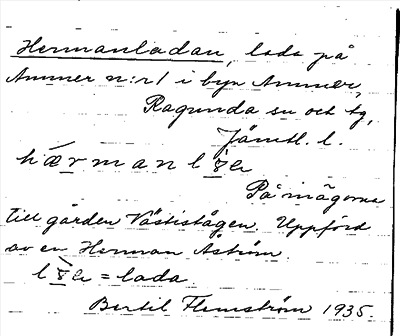 Hermanladan, lada på
Ammer n:r 1 i byn Ammer,
Ragunda sn och tg,
Jämtl. l.
hærmanl
På mågorna
till gården Västistågen. Uppförd
av en Herman Åström.
= lada
Bertil Flemström 1935.